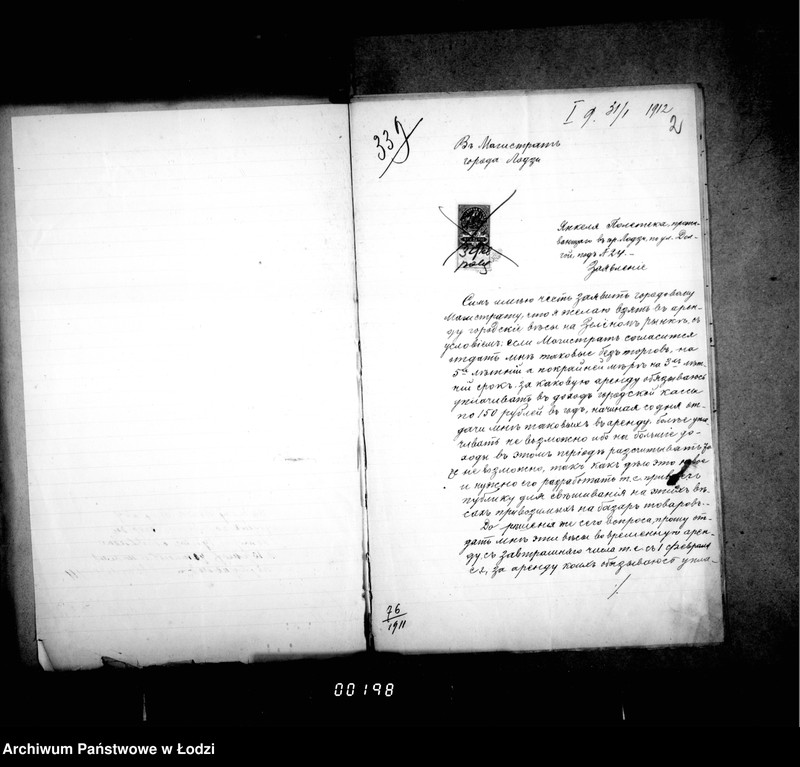 I д. 31/I 1912
2
339
Въ Магистратъ
города Лодзи
Янкеля
вающаго въ гор. Лодзи, по ул. Дол-
гой, подъ №24.
Заявленіе
Симъ имѣю честь заявить городовому
Магистрату, что я желаю взять въ арен-
ду городскіе вѣсы на Зеленомъ рынкѣ, съ
условіемъ: если Магистратъ согласится
отдать мнѣ таковые безъ торговъ, на
5ти лѣтній а покрайней мѣрѣ на 3хъ лѣт-
ній срокъ. за каковую аренду обязываюсь
уплачивать въ доходъ городской кассы
по 150 рублей въ годъ, начиная со дня от-
дачи мнѣ таковыхъ въ аренду. болѣе упла-
чивать не возможно ибо на большіе до-
ходы въ этомъ періодѣ разсчитывать
не возможно, такъ какъ дѣло это новое
и нужно его разработать т. е.
публику для свѣшиванія на этихъ вѣ-
сахъ привозимыхъ на базаръ товаровъ.
До рѣшенія же сего вопроса, прошу от-
дать мнѣ эти вѣсы во временную арен-
ду, съ завтрашняго числа т. е. съ 1 февраля
с. г., за аренду коихъ обязываюсь упла-
./.
76
1911
00198
Archiwum Państwowe w Łodzi